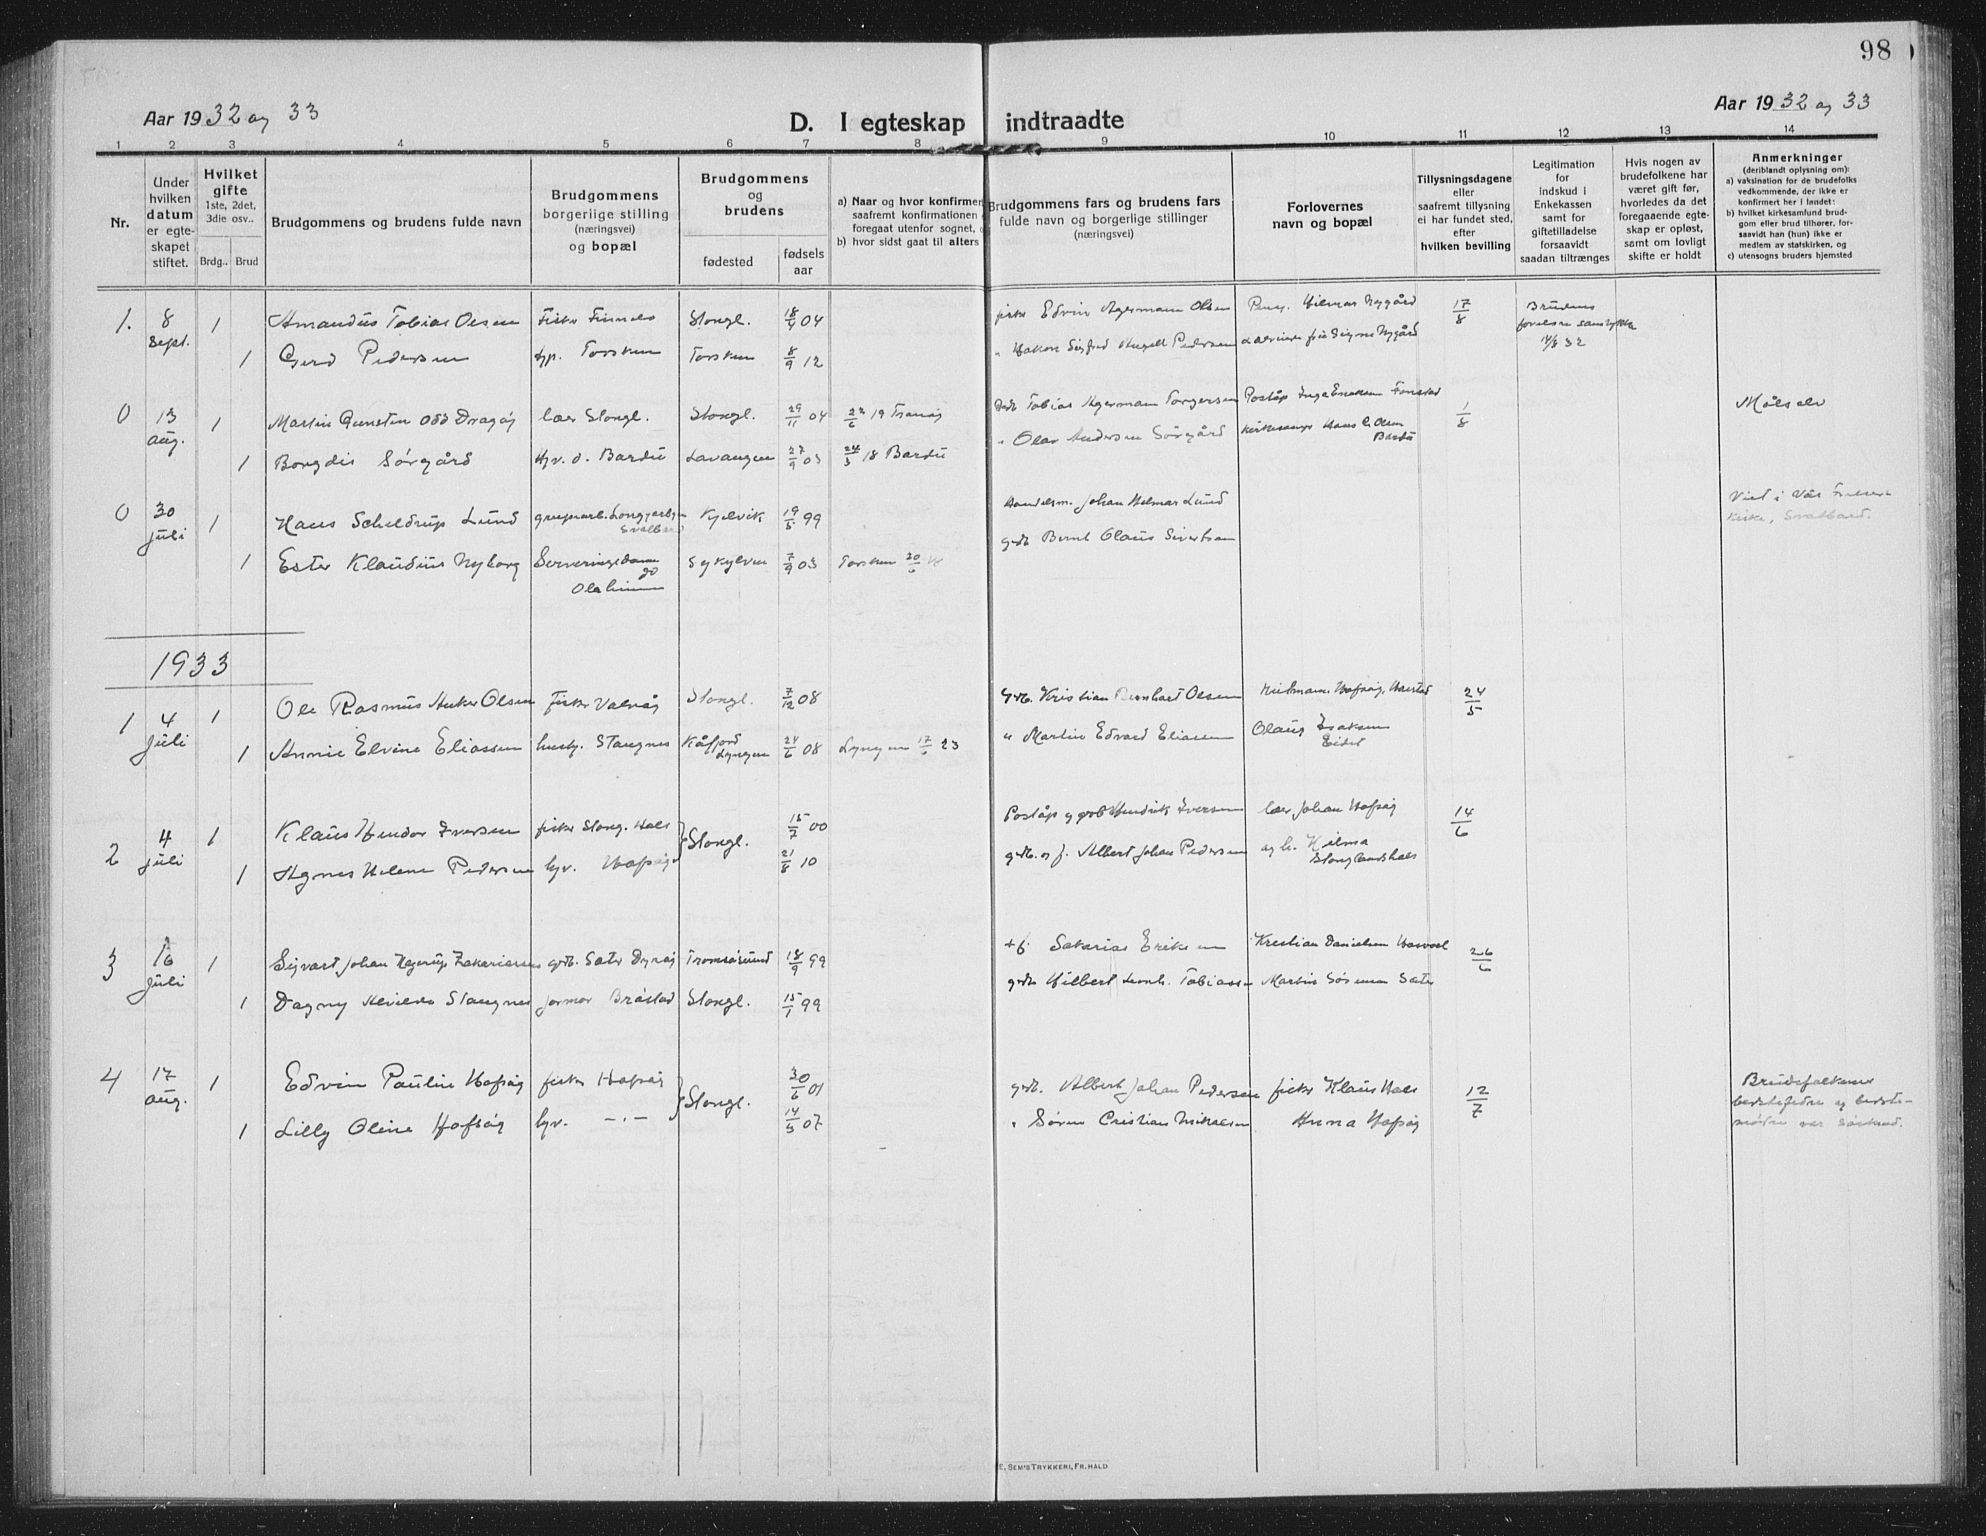 98
Aar 1932 og 33
D. I egteskap indtraadte
Aar 1932 og 33
1 2 3 4 5 6 7 8 9 10 11 12 13 14
Nr.
Under
hvilken
datum
er egte-
skapet
stiftet.
Hvilket
gifte
1ste, 2det,
3die osv..
Brdg.. Brud
Brudgommens og brudens fulde navn
Brudgommens
borgerlige stilling
(næringsvei)
og bopæl
Brudgommens
og
brudens
fødested
fødsels
aar
a) Naar og hvor konfirmer
saafremt konfirmationen
foregaat utenfor sognet,
b) hvor sidst gaat til alters
Brudgommens fars og brudens fars
fulde navn og borgerlige stillinger
(næringsvei)
Forlovernes
navn og bopæl
Tillysningsdagene
eller
saafremt tillysning
ei har fundet sted,
efter
hvilken bevilling
Legitimation
for
indskud i
Enkekassen
samt for
giftetilladelse
forsaavidt
saadan tiltrænges
Hvis nogen av
brudefolkene har
været gift før,
hvorledes da det
foregaaende egte-
skap er opløst,
samt om lovligt
skifte er holdt
Anmerkninger
(deriblandt oplysning om):
a) vaksination for de brudefolks
vedkommende, der ikke er
konfirmert her i landet:
b) hvilket kirkesamfund brud-
gom eller brud tilhører, for-
saavidt han (hun) ikke er
medlem av statskirken, og
c) utensogns bruders hjemsted
1. 8 sept. 1 Amandus Tobias Olsen Fisker Finnes Stongl. 18/4 04 fisker Edvin Agermann Olsen Hilmar Nygård 17/8 Brudens
1 Gerd Pedersen Torsken Torsken 8/9 12 " Hakon Sigfred Pedersen Signe Nygård
0 13 aug. 1 Martin Gunsten Odd Dragøy lær Stongl. Stongl. 29/11 04 19 Tranøy Tobias Agerman Torgersen 1/8 Målselv
1 Borgdis Sørgård Hv. d. Bardu Lavangen 27/9 03 24/3 18 Bardu " Olav Andersen Sørgård Kirkesanger Hans Olsen Bardu
0 30 juli 1 Hans Scheldrup Lund Longyearbyen Svalbard Kjelvik 19/5 99 Handelsm. Johan Hilmar Lund Viet i Vår Frelsers
kirke, Svalbard.
1 Ester Klaudine Nyborg Serveringsdame Sykylven 7/9 03 Torsken 20/6 Bernt Olaus Sivertsen
1933
1 4 juli 1 Ole Rasmus Anker Olsen Fisker Valvåg Stongl. 7/12 08 Kristian Bernhart Olsen Hofsøy, Harstad 24/5
1 Annie Elvine Eliassen Stangnes Kåfjord Lyngen 24/6 08 Lyngen 17/6 23 " Martin Edvard Eliassen Olaus Isaksen Eidet
2 4 juli 1 Klaus Hendor Iversen fisker Stong. Hals Stongl. 15/7 00 Hendrik Iversen lær Johan Hofsøy 14/6
1 Agnes Helene Pedersen hv. Hofsøy 21/8 10 Albert Johan Pedersen og h. Hilma Stonglandshals
3 16 juli 1 Sigvart Johan Hagerup Zakariassen Sæter Dyrøy Tromsøsund 18/9 99 Sakarias Eriksen Kristian Danielsen 26/6
1 Dagny Alvilde Stangnes jormor Brøstad Stongl. 15/1 99 Hilbert Tobiassen Martin Sørensen Sæter
4 17 aug. 1 Edvin Pauline Hofsøy fisker Hofsøy Stongl. 30/6 01 Albert Johan Pedersen fisker Klaus Hals 12/7 Brudefolkenes
bestefedre og beste-
mødre var søskend.
1 Lilly Oline Hofsøy hv. -.- 14/5 07 " Søren Cristian Mikalsen Anna Hofsøy
E. SEM'S TRYKKERI, FR.HALD